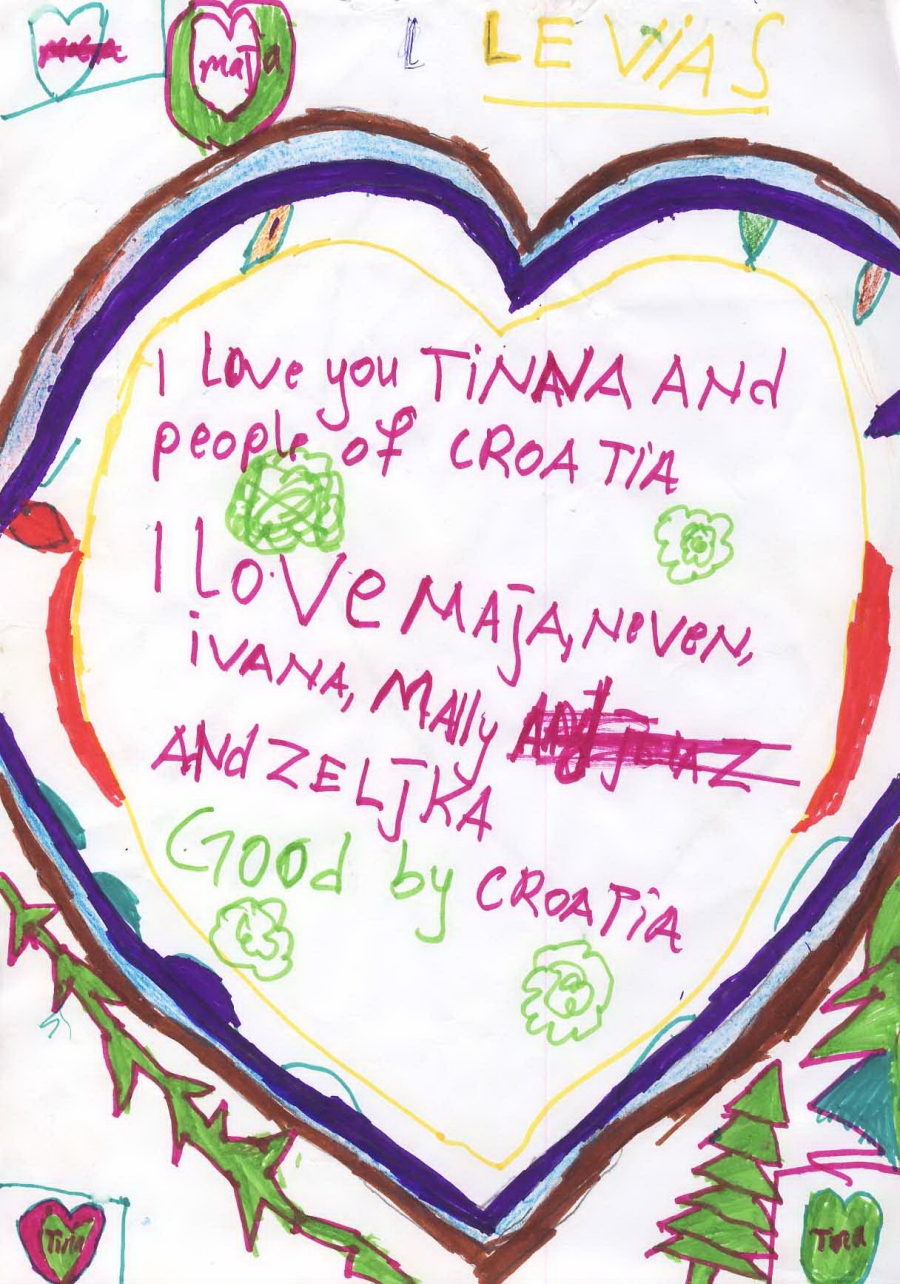 maja
L LEViAS
I Love you TiNNA ANd
people of CROATiA
I LoVe MAJA, NeVeN,
iVANA, MAlly
ANd ZELJKA
GOOd by CROATiA
Tina
Tina